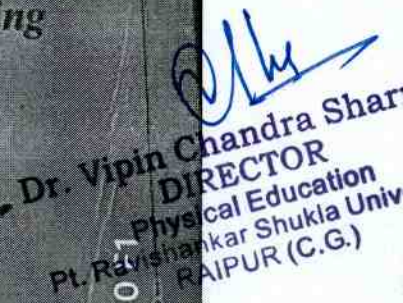 ing
Dr. Vipin Chandra Shar
DIRECTOR
Physical Education
Pt. Ravishankar Shukla Univ
RAIPUR (C.G.)
051